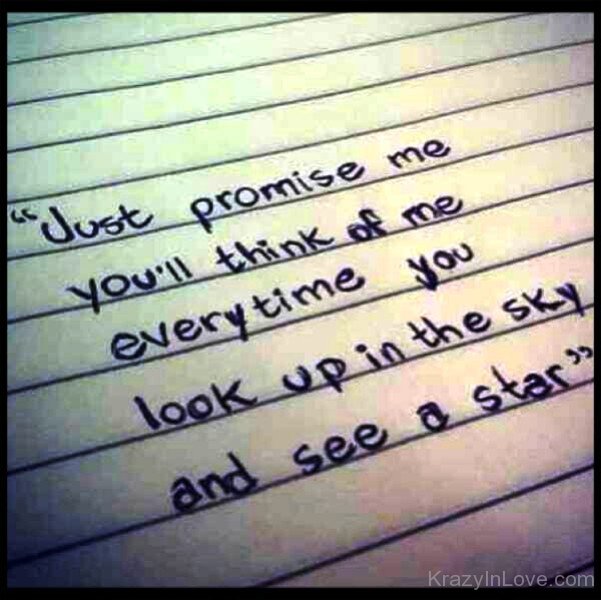 “Just promise me
you'll think of me
everytime you
look up in the sky
and see a star”
KrazyInLove.com